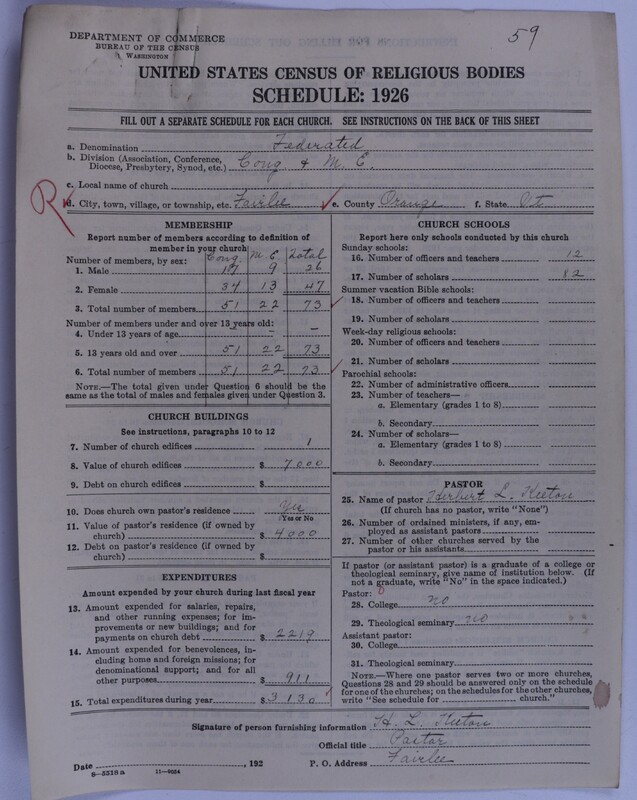 DEPARTMENT OF COMMERCE
BUREAU OF THE CENSUS
WASHINGTON
59
UNITED STATES CENSUS OF RELIGIOUS BODIES
SCHEDULE: 1926
FILL OUT A SEPARATE SCHEDULE FOR EACH CHURCH. SEE INSTRUCTIONS ON THE BACK OF THIS SHEET
a. Denomination Federated
b. Division (Association, Conference, Diocese, Presbytery, Synod, etc.) Cong. & M. E.
c. Local name of church
R
d. City, town, village, or township, etc. Fairlee e. County Orange f. State Vt
MEMBERSHIP
Report number of members according to definition of
member in your church
Cong. M. E. Total
Number of members, by sex:
1. Male 17 9 26
2. Female 34 13 47
3. Total number of members 51 22 73
Number of members under and over 13 years old:
4. Under 13 years of age – –
5. 13 years old and over 51 22 73
6. Total number of members 51 22 73
NOTE.—The total given under Question 6 should be
same as the total of males and females given under Question 3.
CHURCH BUILDINGS
See instructions, paragraphs 10 to 12
7. Number of church edifices 1
8. Value of church edifices $ 7000
9. Debt on church edifices $
10. Does church own pastor's residence Yes
Yes or No
11. Value of pastor's residence (if owned by
church) $ 4000
12. Debt on pastor's residence (if owned by
church) $
EXPENDITURES
Amount expended by your church during last fiscal year
13. Amount expended for salaries, repairs,
and other running expenses; for im-
provements or new buildings; and for
payments on church debt $ 2219
14. Amount expended for benevolences, in-
cluding home and foreign missions; for
denominational support; and for all
other purposes $ 911
15. Total expenditures during year $ 3130
CHURCH SCHOOLS
Report here only schools conducted by this church
Sunday schools:
16. Number of officers and teachers 12
17. Number of scholars 82
Summer vacation Bible schools:
18. Number of officers and teachers
19. Number of scholars
Week-day religious schools:
20. Number of officers and teachers
21. Number of scholars
Parochial schools:
22. Number of administrative officers
23. Number of teachers—
a. Elementary (grades 1 to 8)
b. Secondary
24. Number of scholars—
a. Elementary (grades 1 to 8)
b. Secondary
PASTOR
25. Name of pastor Herbert L. Keeton
(If church has no pastor, write "None")
26. Number of ordained ministers, if any, em-
ployed as assistant pastors
27. Number of other churches served by the
pastor or his assistants
If pastor (or assistant pastor) is a graduate of a college or
theological seminary, give name of institution below. (If
not a graduate, write "No" in the space indicated.)
Pastor:
28. College no
29. Theological seminary no
Assistant pastor:
30. College
31. Theological seminary
NOTE.—Where one pastor serves two or more churches,
Questions 28 and 29 should be answered only on the schedule
for one of the churches; on the schedules for the other churches,
write "See schedule for ________ church."
Signature of person furnishing information H. L. Keeton
Official title Pastor
Date , 192 P. O. Address Fairlee
8-5319a 11-9354